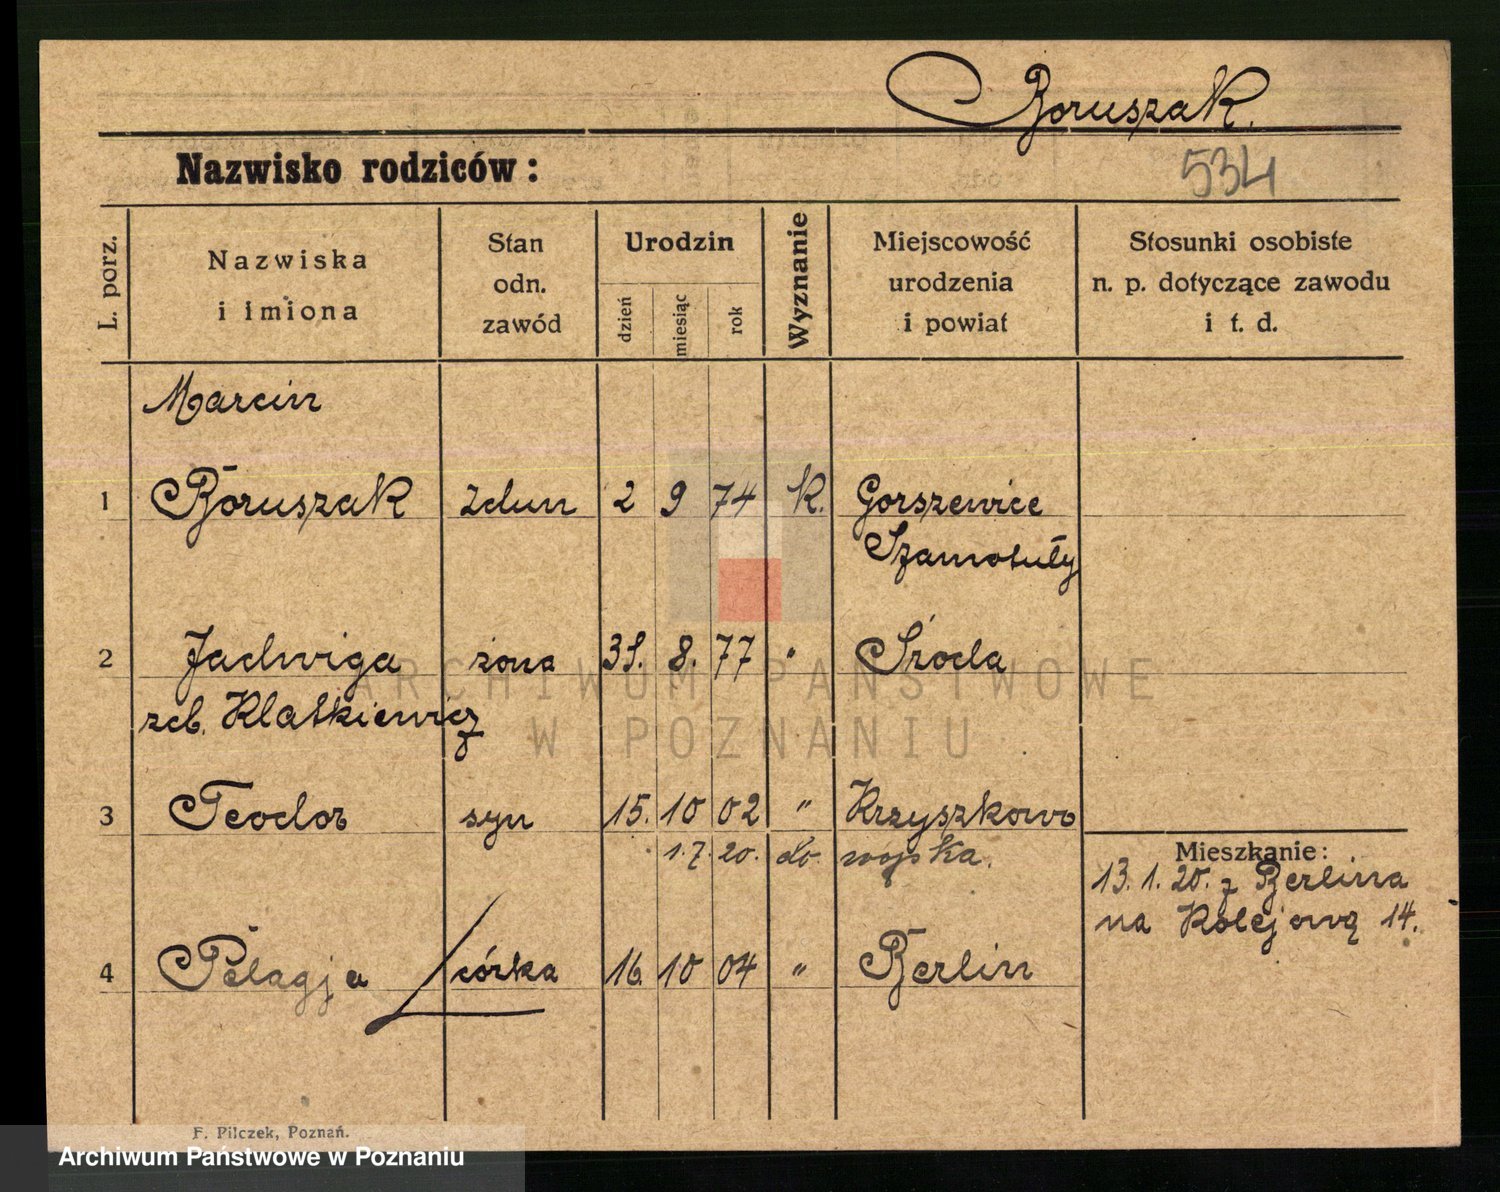 Boruszak.
Nazwisko rodziców:
534
L. porz.
Nazwiska
i imiona
Stan
odn.
zawód
Urodzin
dzień
miesiąc
rok
Wyznanie
Miejscowość
urodzenia
i powiat
Stosunki osobiste
n. p. dotyczące zawodu
i t. d.
Marcin
1 Boruszak zdun 2 9 74 K. Gorszewice
Szamotuły
2 Jadwiga żona 31. 8. 77 " Środa
zeb. Klatkiewicz
3 Teodor syn 15. 10 02 " Krzyszkowo
1.7.20. do wojska.
Mieszkanie:
13.1.20. z Berlina
na Kolejową 14.
4 Pelagja córka 16. 10 04 " Berlin
F. Pilczek, Poznań.
ARCHIWUM PAŃSTWOWE
W POZNANIU
Archiwum Państwowe w Poznaniu